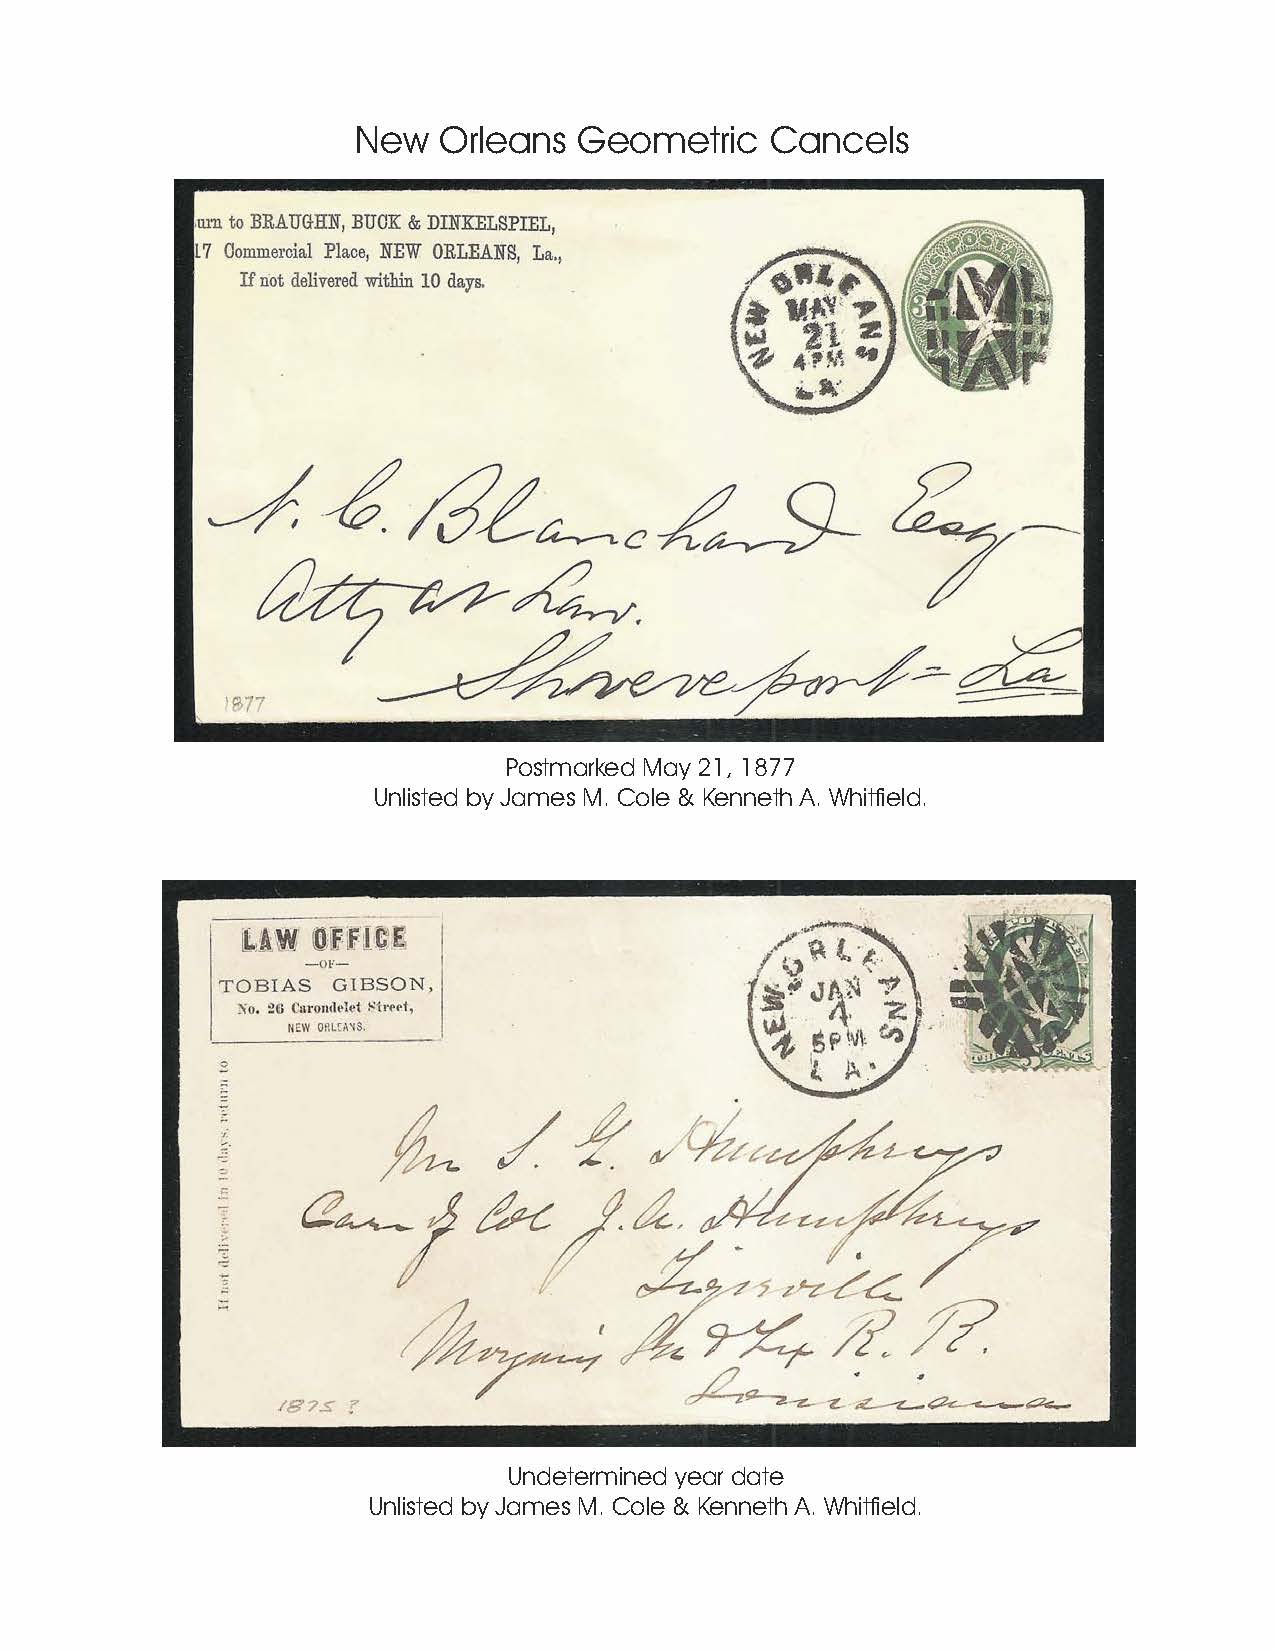 New Orleans Geometric Cancels
urn to BRAUGHN, BUCK & DINKELSPIEL,
17 Commercial Place, NEW ORLEANS, La.,
If not delivered within 10 days.
NEW ORLEANS
MAY
21
4PM
LA
U.S. POSTAGE
3
N. C. Blanchard Esq
Atty at Law.
Shreveport = La
1877
Postmarked May 21, 1877
Unlisted by James M. Cole & Kenneth A. Whitfield.
LAW OFFICE
—OF—
TOBIAS GIBSON,
No. 26 Carondelet Street,
NEW ORLEANS.
If not delivered in 10 days, return to
NEW ORLEANS
JAN
4
5PM
LA.
3 CENTS
Mr S. L. Humphreys
Care of Col J. A. Humphreys
Tigerville
Morgan's La & Tex R. R.
Louisiana
1875 ?
Undetermined year date
Unlisted by James M. Cole & Kenneth A. Whitfield.